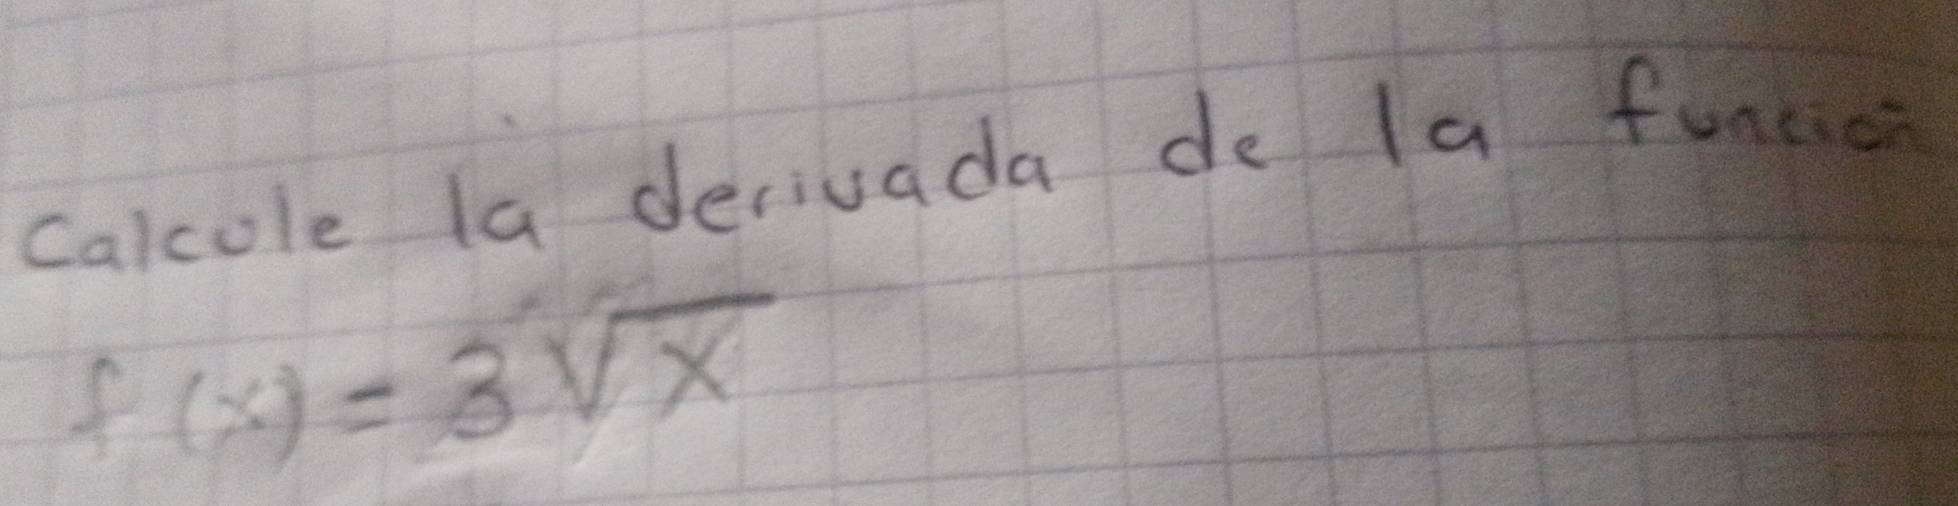 Calcule la derivada de la función
f(x) = 3√x